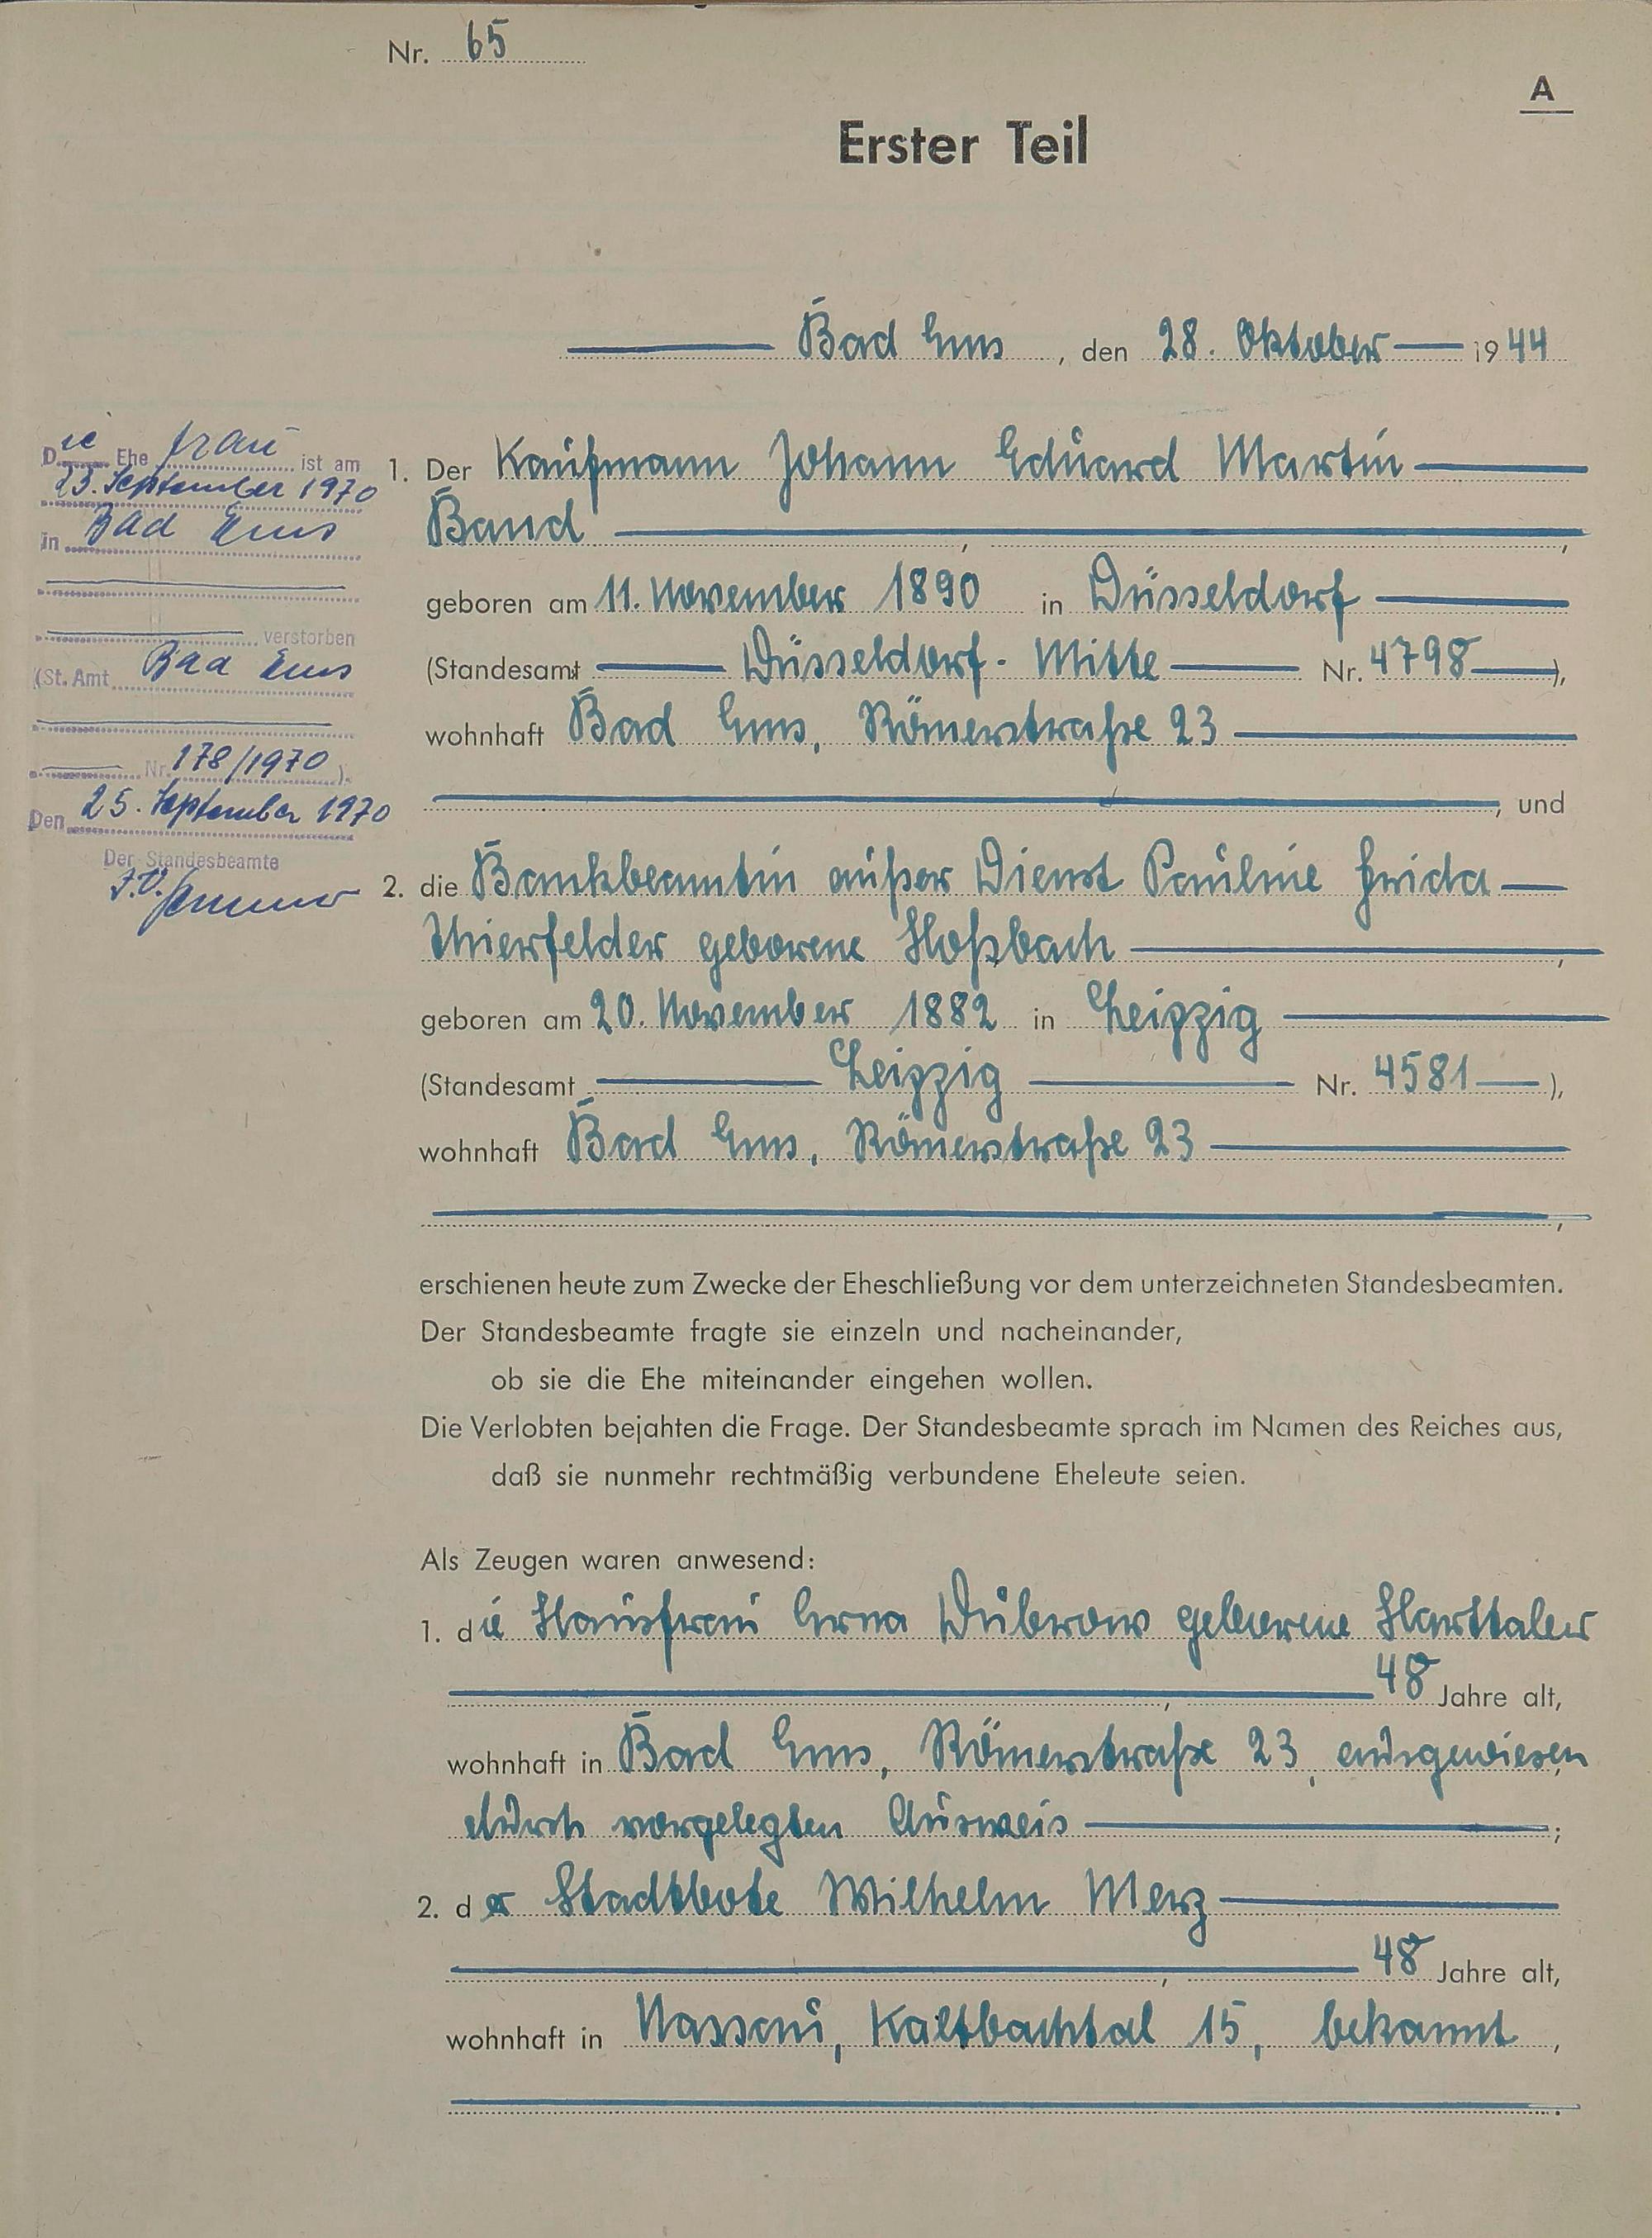 Nr. 65
A
Erster Teil
Bad Ems, den 28. Oktober 1944
Die Ehefrau ist am
23. September 1970
in Bad Ems
verstorben
(St. Amt Bad Ems
Nr. 178/1970).
Den 25. September 1970
Der Standesbeamte
I.V.
1. Der Kaufmann Johann Eduard Martin
Band,
geboren am 11. November 1890 in Düsseldorf
(Standesamt Düsseldorf-Mitte Nr. 4798),
wohnhaft Bad Ems, Römerstraße 23
, und
2. die Bankbeamtin außer Dienst Pauline Frida
Thierfelder geborene Hoßbach,
geboren am 20. November 1882 in Leipzig
(Standesamt Leipzig Nr. 4581),
wohnhaft Bad Ems, Römerstraße 23
,
erschienen heute zum Zwecke der Eheschließung vor dem unterzeichneten Standesbeamten.
Der Standesbeamte fragte sie einzeln und nacheinander,
ob sie die Ehe miteinander eingehen wollen.
Die Verlobten bejahten die Frage. Der Standesbeamte sprach im Namen des Reiches aus,
daß sie nunmehr rechtmäßig verbundene Eheleute seien.
Als Zeugen waren anwesend:
1. die Hausfrau Erna Dubrow geborene Harttaler
, 48 Jahre alt,
wohnhaft in Bad Ems, Römerstraße 23, ausgewiesen
durch vorgelegten Ausweis;
2. der Stadtbote Wilhelm Merz
, 48 Jahre alt,
wohnhaft in Nassau, Kaltbachtal 15, bekannt,
.